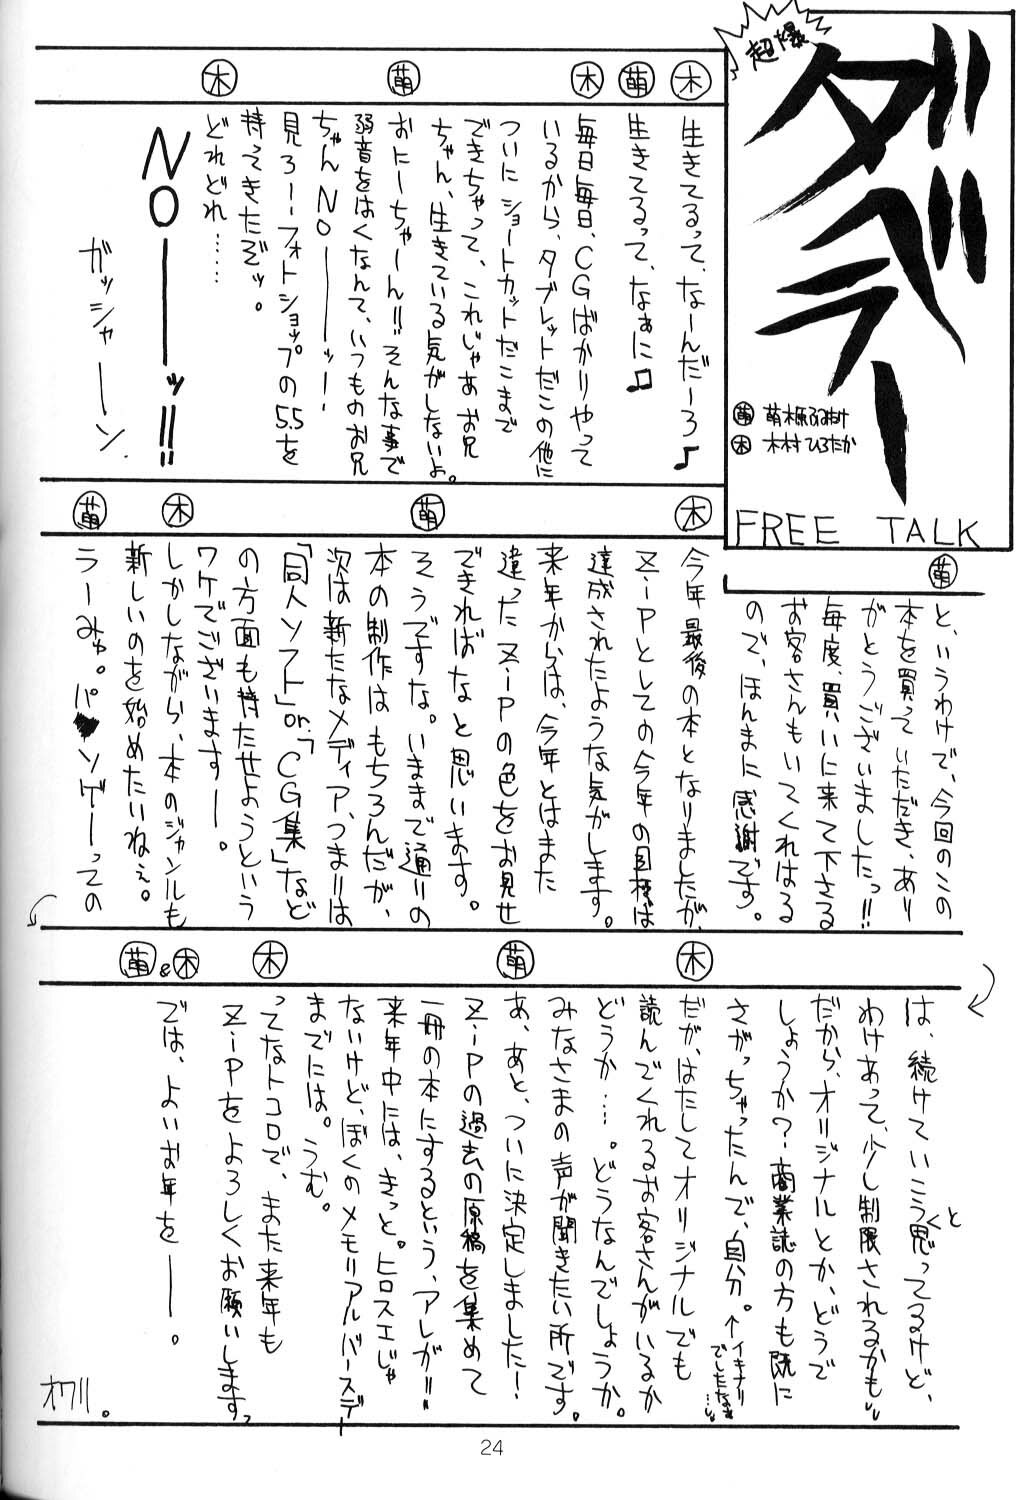 超爆
ダベラー
萌 萌木原ふみたけ
木 木村ひろたか
FREE TALK
木
生きてるって、なーんだーろ♪
萌
生きてるって、なぁに♫
木
毎日毎日、CGばかりやって
いるから、タブレットだこの他に
ついにショートカットだこまで
できちゃって、これじゃあお兄
ちゃん、生きている気がしないよ。
萌
おにーちゃーん!!そんな事で
弱音をはくなんて、いつものお兄
ちゃんNOーーーッ!
見ろー!フォトショップの5.5を
持ってきたぞッ。
木
どれどれ……
NOーーーッ!!
ガッシャーーン
萌
と、いうわけで、今回のこの
本を買っていただき、あり
がとうございましたっ!!
毎度、買いに来て下さる
お客さんもいてくれはる
ので、ほんまに感謝です。
木
今年最後の本となりましたが、
Z-iPとしての今年の目標は
達成されたような気がします。
来年からは、今年とはまた
違ったZ-iPの色をお見せ
できればなと思います。
萌
そうですな。いままで通りの
本の制作はもちろんだが、
次は新たなメディア、つまりは
「同人ソフト」or.「CG集」など
の方面も持たせようという
ワケでございますー。
木
しかしながら、本のジャンルも
新しいのを始めたいねぇ。
萌
ラーみゅ。パ♥ソゲーっての
は、続けていこうと思ってるけど、
わけあって、少し制限されるかも…
だから、オリジナルとか、どうで
しょうか?商業誌の方も既に
さがっちゃったんで、自分。↑イキナリ
でしたなぁ…。
木
だが、はたしてオリジナルでも
読んでくれるお客さんがいるか
どうか…。どうなんでしょうか。
みなさまの声が聞きたい所です。
萌
あ、あと、ついに決定しました!
Z-iPの過去の原稿を集めて
一冊の本にするという、アレが!!
来年中には、きっと。ヒロスエじゃ
ないけど、ぼくのメモリアルバースデー
までには。うむ。
木
ってなトコロで、また来年も
Z-iPをよろしくお願いします。
萌&木
では、よいお年をーーー。
オワリ。
24